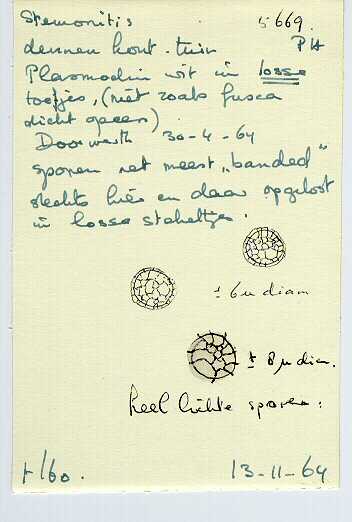 Stemonitis 5669.
dennen hout. tuin PH
Plasmodium wit in losse
toefjes, (niet zoals fusca
dicht opeen)
Doorwerth 30-4-64
sporen net meest „banded"
slechts hier en daar opgelost
in losse stekeltjes.
± 6 µ diam
± 8 µ diam.
heel lichte sporen.
+/60. 13-11-64